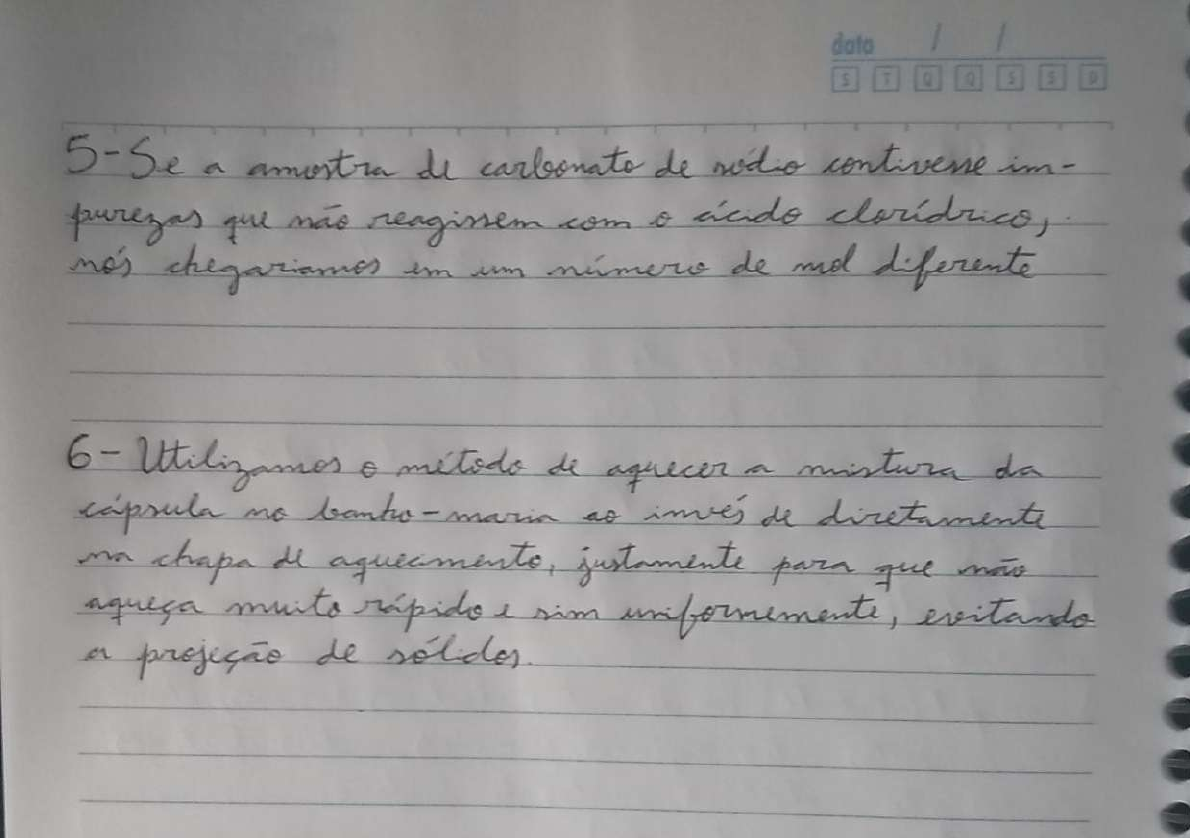 data / /
S T Q Q S S D
5-Se a amostra de carbonato de sódio contivesse im-
purezas que não reagissem com o ácido clorídrico,
nós chegariamos em um número de mol diferente
6- Utilizamos o método de aquecer a mistura da
cápsula no banho-maria ao invés de diretamente
na chapa de aquecimento, justamente para que não
aqueça muito rápido e sim uniformemente, evitando
a projeção de sólidos.